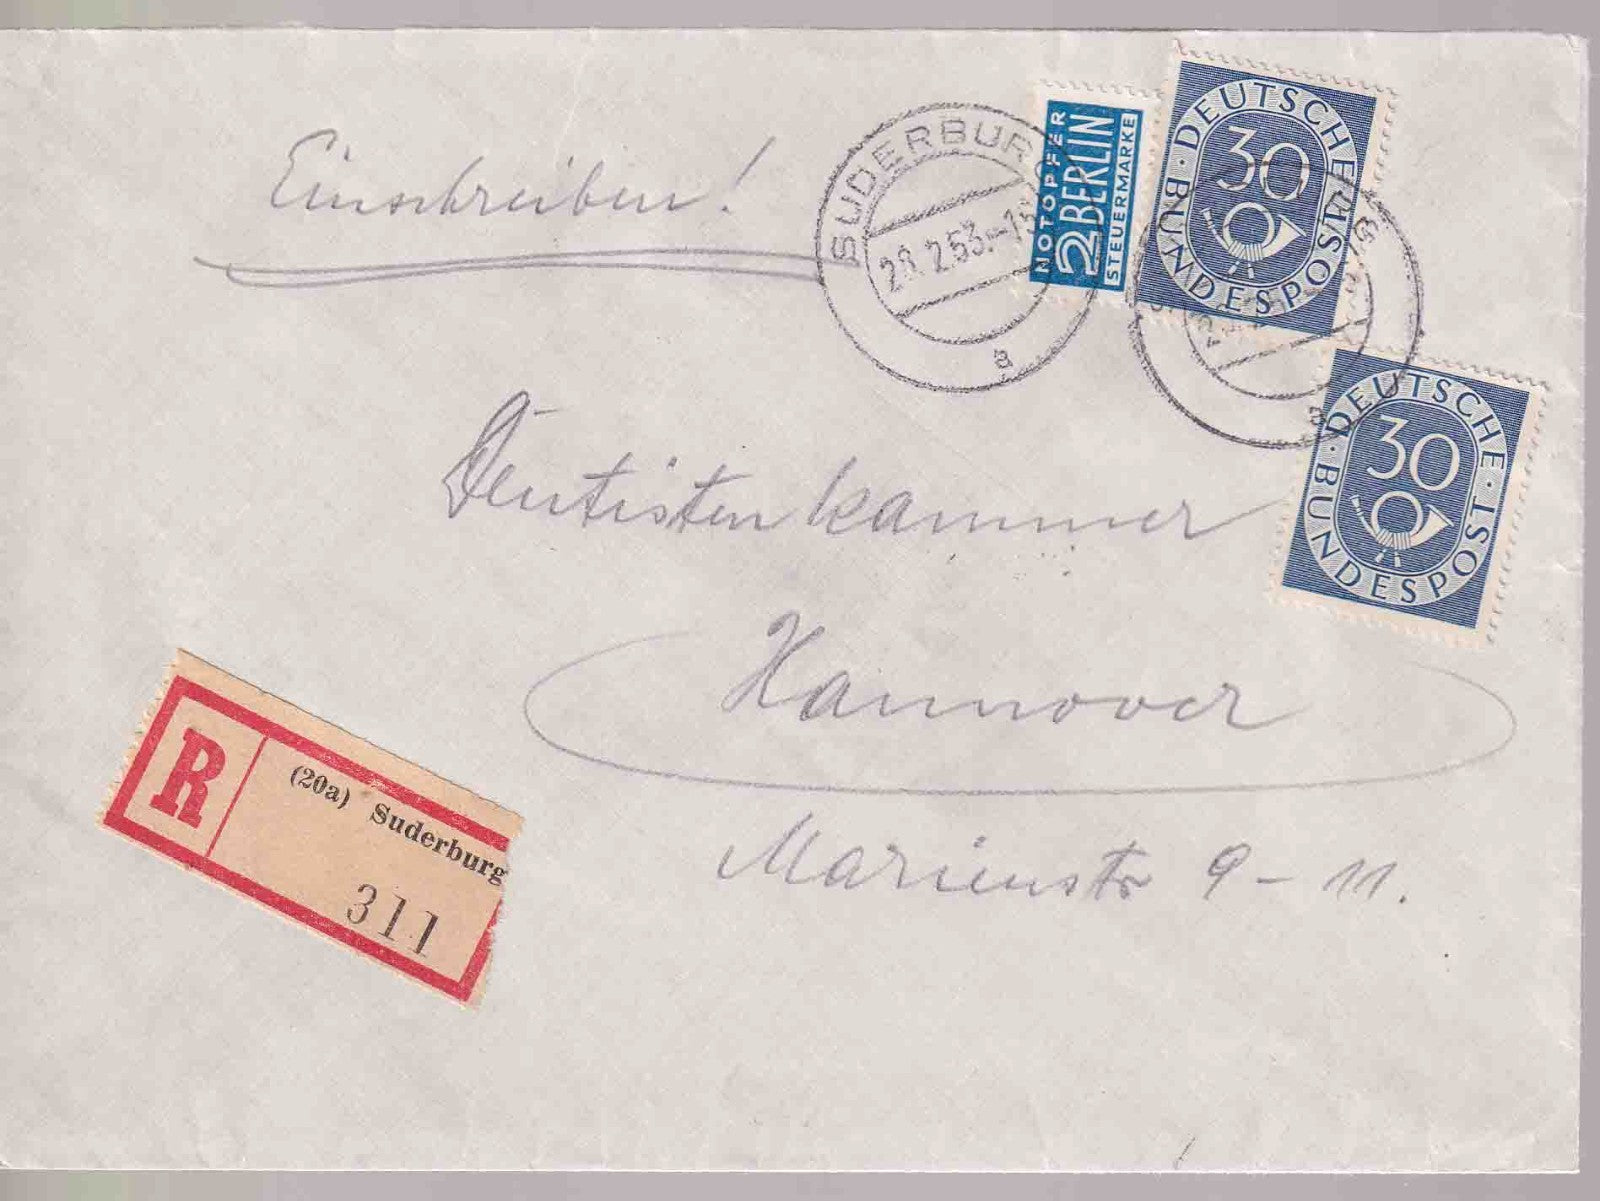 Einschreiben!
SUDERBURG
28.2.53.-7.5
a
NOTOPFER
2 BERLIN
STEUERMARKE
DEUTSCHE · POST
BUNDESPOST
30
DEUTSCHE · POST
BUNDESPOST
30
a
Dentistenkammer
Hannover
Marienstr 9-11.
R
(20a) Suderburg
311